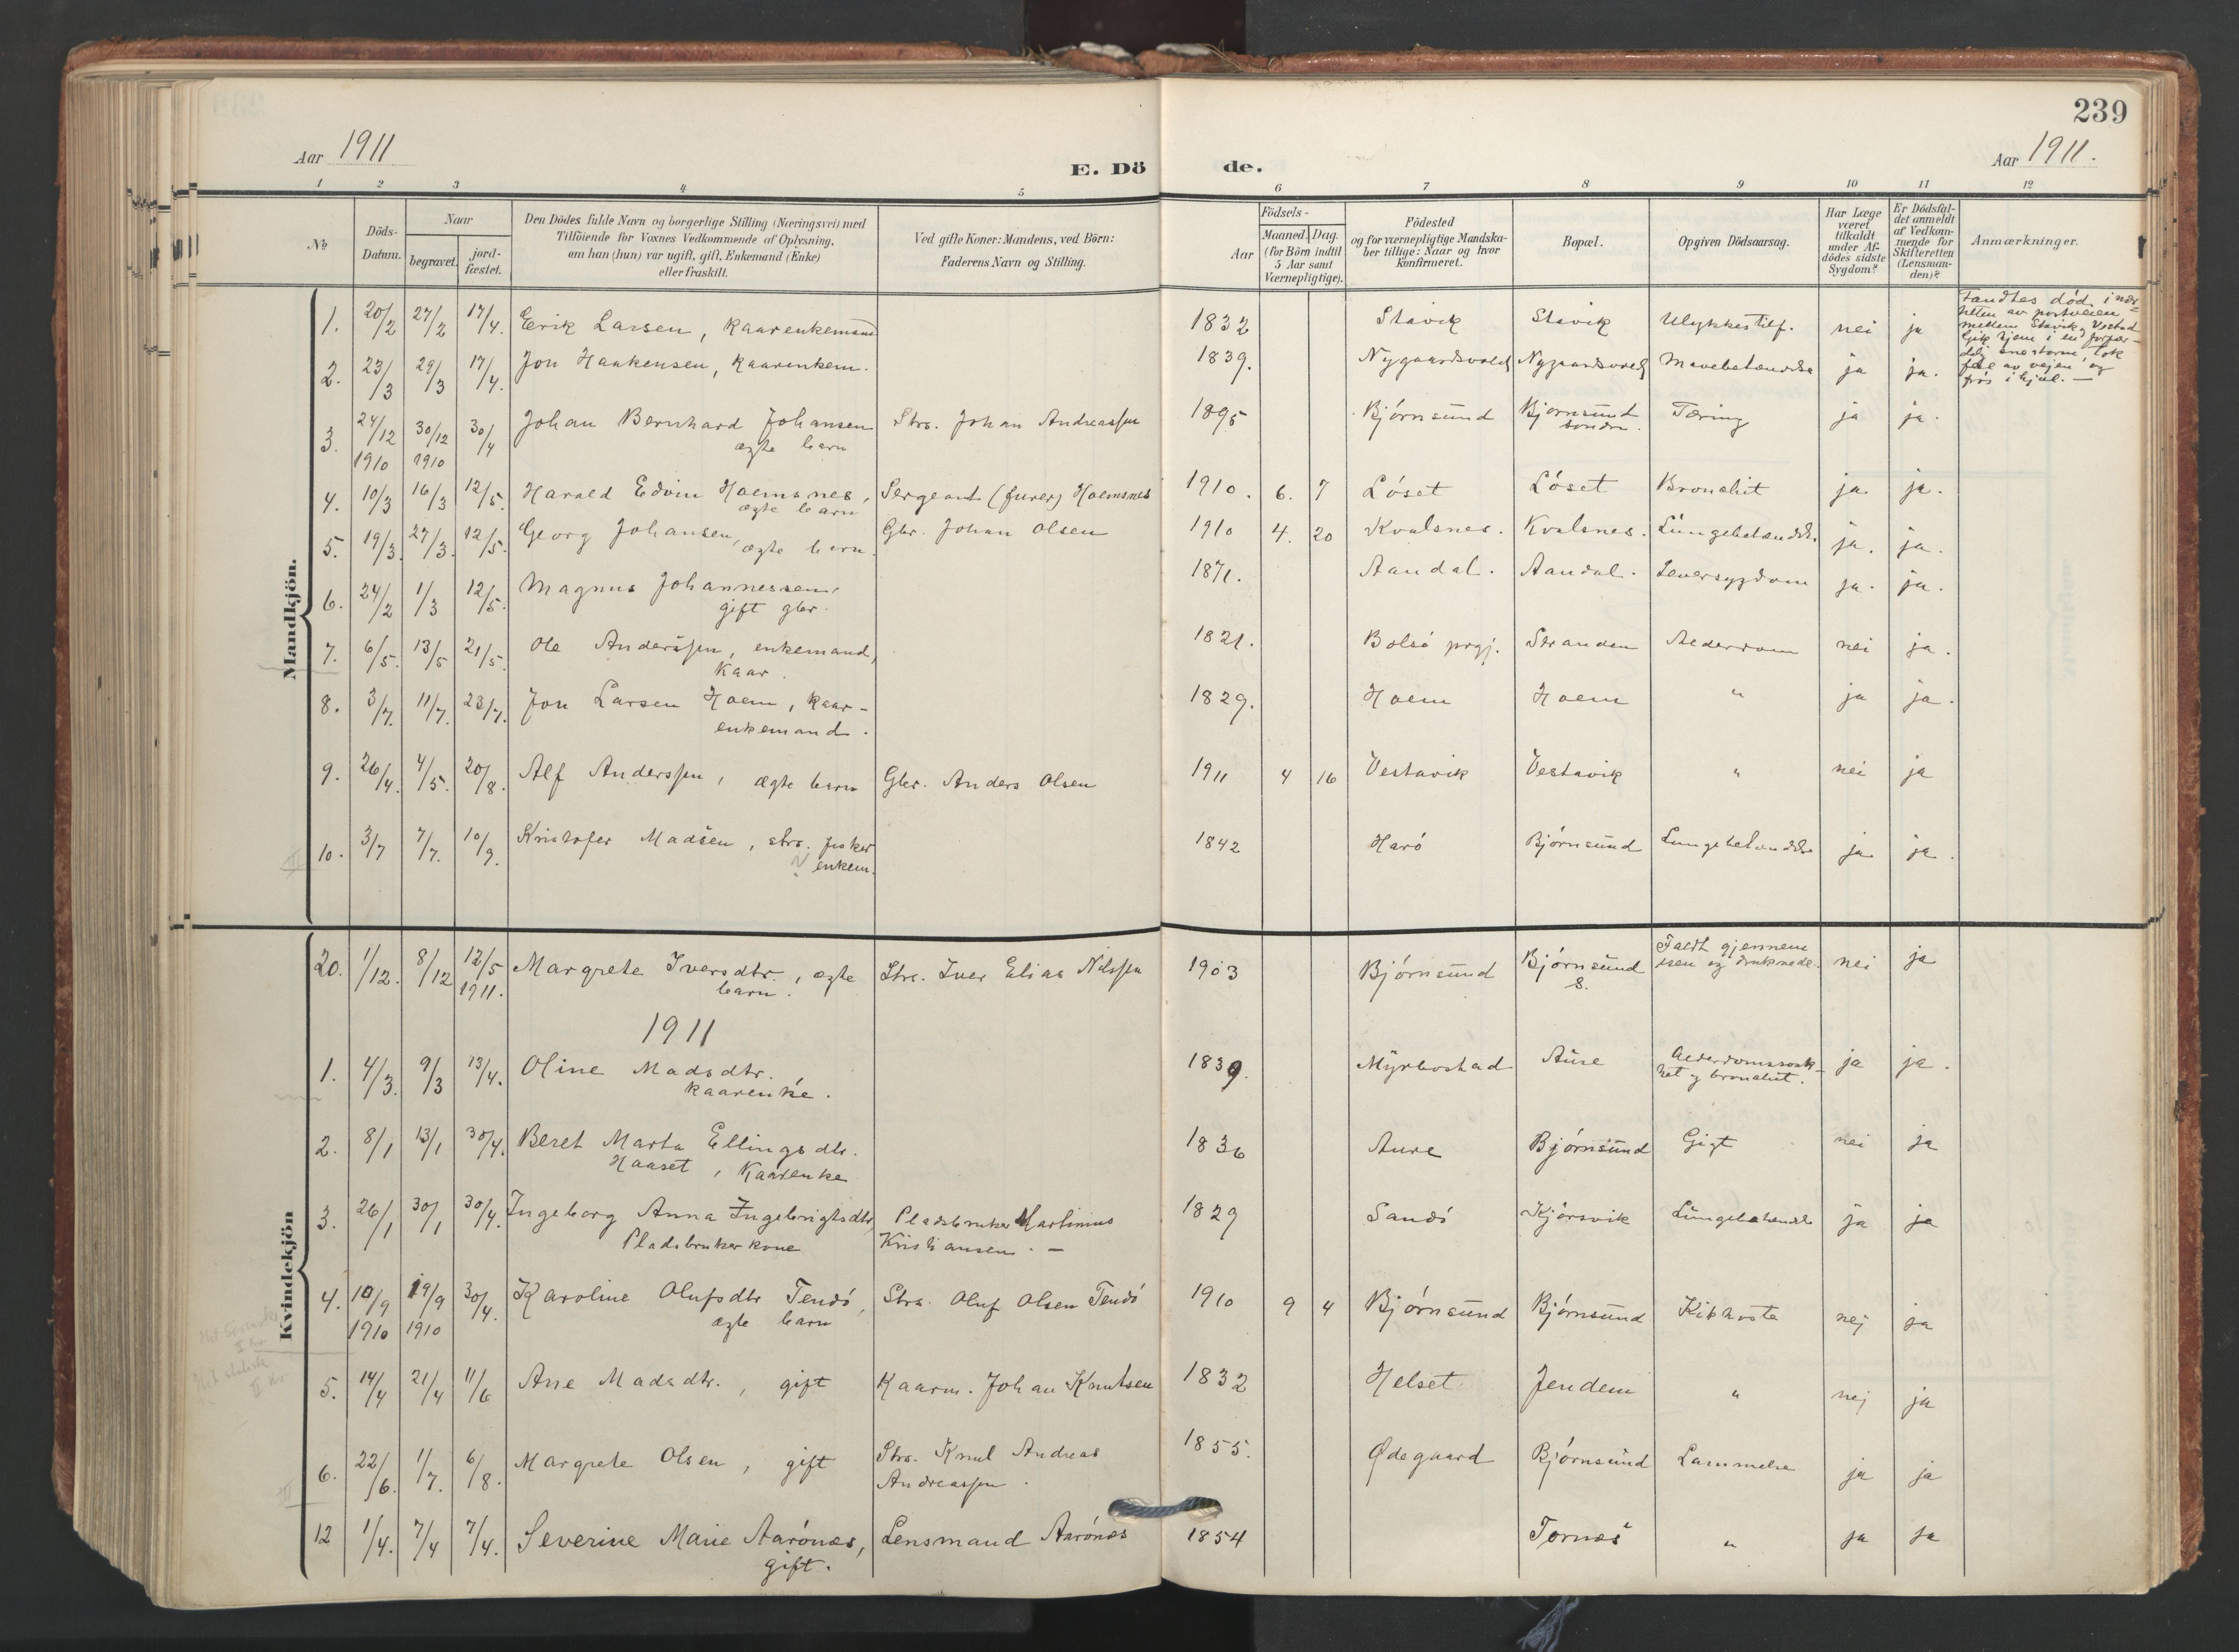 239
Aar 1911
E. Dö de.
Aar 1911.
1 2 3 4 5 6 7 8 9 10 11 12
№
Döds-Datum.
Naar
begravet. jord-fæstet.
Den Dödes fulde Navn og borgerlige Stilling (Næringsvei) med
Tilföiende for Voxnes Vedkommende af Oplysning,
om han (hun) var ugift, gift, Enkemand (Enke)
eller fraskilt.
Ved gifte Koner: Mandens, ved Börn:
Faderens Navn og Stilling.
Födsels-
Aar Maaned. Dag.
(for Börn indtil
5 Aar samt
Værnepligtige).
Födested
og for værnepligtige Mandska-
ber tillige: Naar og hvor
Konfirmeret.
Bopæl.
Opgiven Dödsaarsag.
Har Læge
været
tilkaldt
under Af-
dödes sidste
Sygdom?
Er Dödsfal-
det anmeldt
af Vedkom-
mende for
Skifteretten
(Lensman-
den)?
Anmærkninger.
Mandkjön.
1. 20/2 27/2 17/4. Erik Larsen, kaarenkemand 1832 Stavik Stavik Ulykkestilf. nei ja
Fandtes död i nær-
heten av postveien
mellem Stavik og Vestad
Gik hjem i en forfær-
delig snestorm, tok
feil av vejen og
frös ihjel. —
2. 23/3 29/3 17/4. Jon Haakensen, Kaarenkem. 1839. Nygaardsvold Nygaardsvold Mavebetændelse ja ja.
3. 24/12 1910 30/12 1910 30/4 Johan Bernhard Johansen Strs. Johan Andreassen 1895 Bjórnsund Bjornsund Tæring ja ja.
ægte barn
söndre.
4. 10/3 16/3 12/5. Harald Edvin Hoemsnes, Sergeant (furer) Hoemsnes 1910. 6. 7 Lóset Lóset Bronchit ja ja.
ægte barn
5. 19/3. 27/3. 12/5. Georg Johansen, Gbr. Johan Olsen 1910 4. 20 Kvalsnes. Kvalsnes. Lungebetændelse ja. ja.
ægte barn.
6. 24/2 1/3 12/5. Magnus Johannessen, 1871. Aandal. Aandal. Leversygdom ja. ja.
gift gbr.
7. 6/5. 13/5 21/5. Ole Anderssen, enkemand, 1821. Bolsó prgj. Stranden Alderdom nei ja.
Kaar.
8. 3/7. 11/7. 23/7. Jon Larsen Hoem, kaar- 1829. Hoem Hoem " ja ja.
enkemand.
9. 26/4. 4/5. 20/8. Alf Anderssen, ægte barn Gbr. Anders Olsen 1911 4 16 Vestavik Vestavik " nei ja
10. 3/7 7/7. 10/9. Kristofer Madsen, strs. fisker 1842 Haró Bjórnsund Lungebetændelse ja ja.
enkem.
Kvindekjön
20. 1/12. 8/12 12/5 1911. Margrete Iversdtr., ægte Strs. Iver Elias Nilssen 1903 Bjórnsund Bjórnsund S. Faldt gjennem nei ja
barn.
isen og druknede.
1911
1. 4/3. 9/3 13/4. Oline Madsdtr. 1839. Myrbostad Aure Alderdomssvak- ja ja.
kaarenke.
het og bronchit.
2. 8/1 13/1 30/4. Beret Marta Ellingsdtr. 1836 Aure Bjórnsund Gigt nei ja
Haaset, Kaarenke
3. 26/1 30/1 30/4. Ingeborg Anna Ingebrigtsdtr, Pladsbruker Martinius 1829 Sandó Kjórsvik Lungebetændelse ja ja
Pladsbrukerkone Kristiansen. —
4. 10/9 1910 19/9 1910 30/4. Karoline Olufsdtr Tendó, Strs. Oluf Olsen Tendó 1910 9 4 Bjórnsund Bjórnsund Kikhoste nej ja
ægte barn
5. 14/4 21/4 11/6 Ane Madsdtr., gift Kaarm. Johan Knutsen 1832 Helset. Jendem " nej ja
6. 22/6. 1/7. 6/8. Margrete Olsen, gift Strs. Knut Andreas 1855. Ødegaard Bjórnsund Lammelse ja ja
Andreassen.
12 1/4. 7/4 7/4. Severine Marie Aarónes, Lensmand Aarónes 1854 Tornes " ja ja
gift.